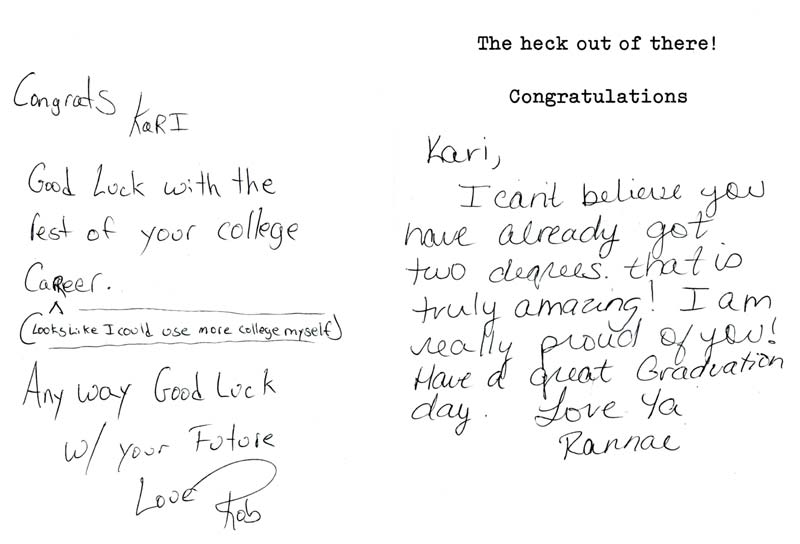 Congrats KARI
Good Luck with the
rest of your college
Career.
(Looks Like I could use more college myself)
Any way Good Luck
w/ your Future
Love Rob
The heck out of there!
Congratulations
Kari,
I can't believe you
have already got
two degrees. that is
truly amazing! I am
really proud of you!
Have a great Graduation
day. Love Ya
Rannae